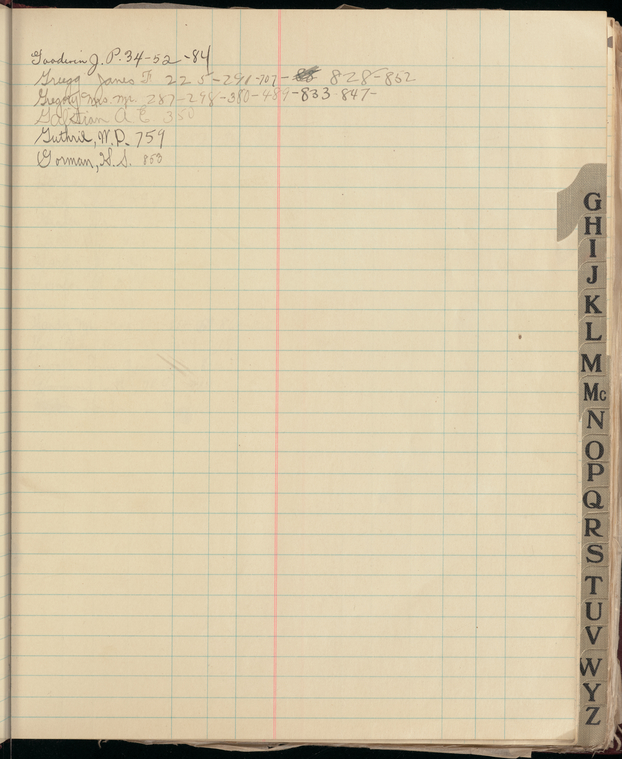 Goodwin J. P. 34-52-84
Gregg James F. 225-291-707- 828-862
Gregory Mrs. M. 287-298-380-489-833 847-
A C 350
Guthrie, W. D. 759
Gorman, H. S. 853
G
H
I
J
K
L
M
Mc
N
O
P
Q
R
S
T
U
V
W
Y
Z